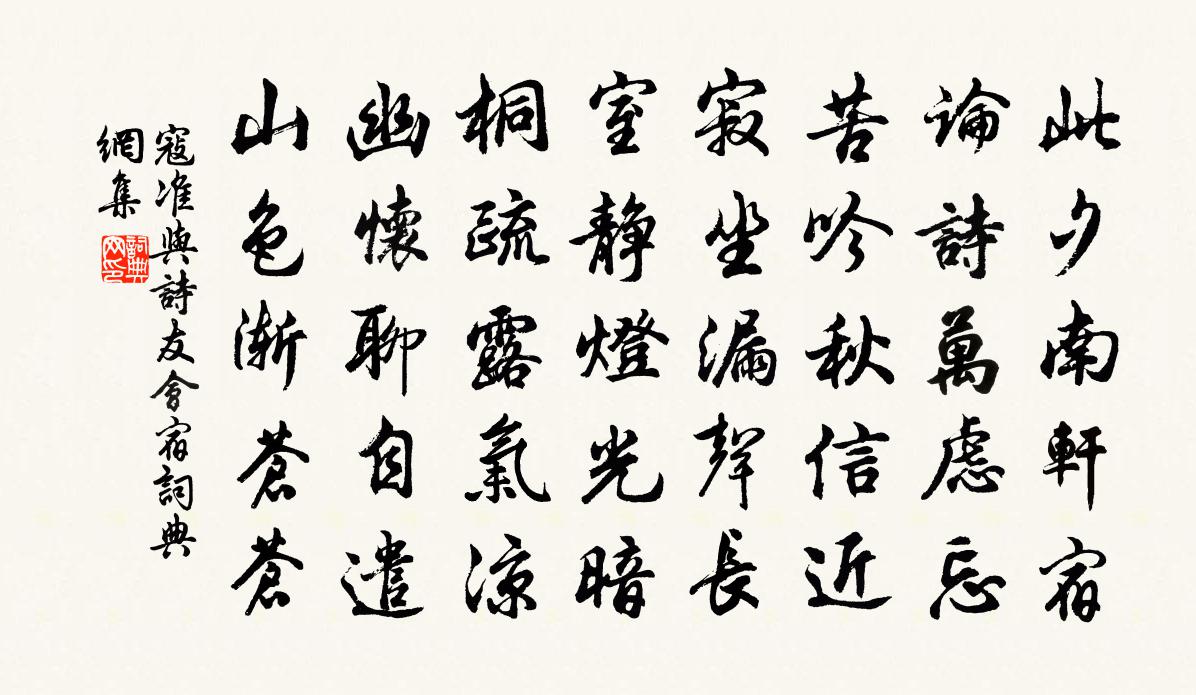 此夕南軒宿
論詩萬慮忘
苦吟秋信近
寂坐漏聲長
室靜燈光暗
桐疏露氣涼
幽懷聊自遣
山色漸蒼蒼
寇准與詩友會宿詞典
網集
詞典
网印